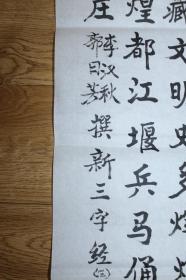 藏文明史多灿
煌都江堰兵马俑
庄
李汉秋
郭芳
撰新三字经(三)